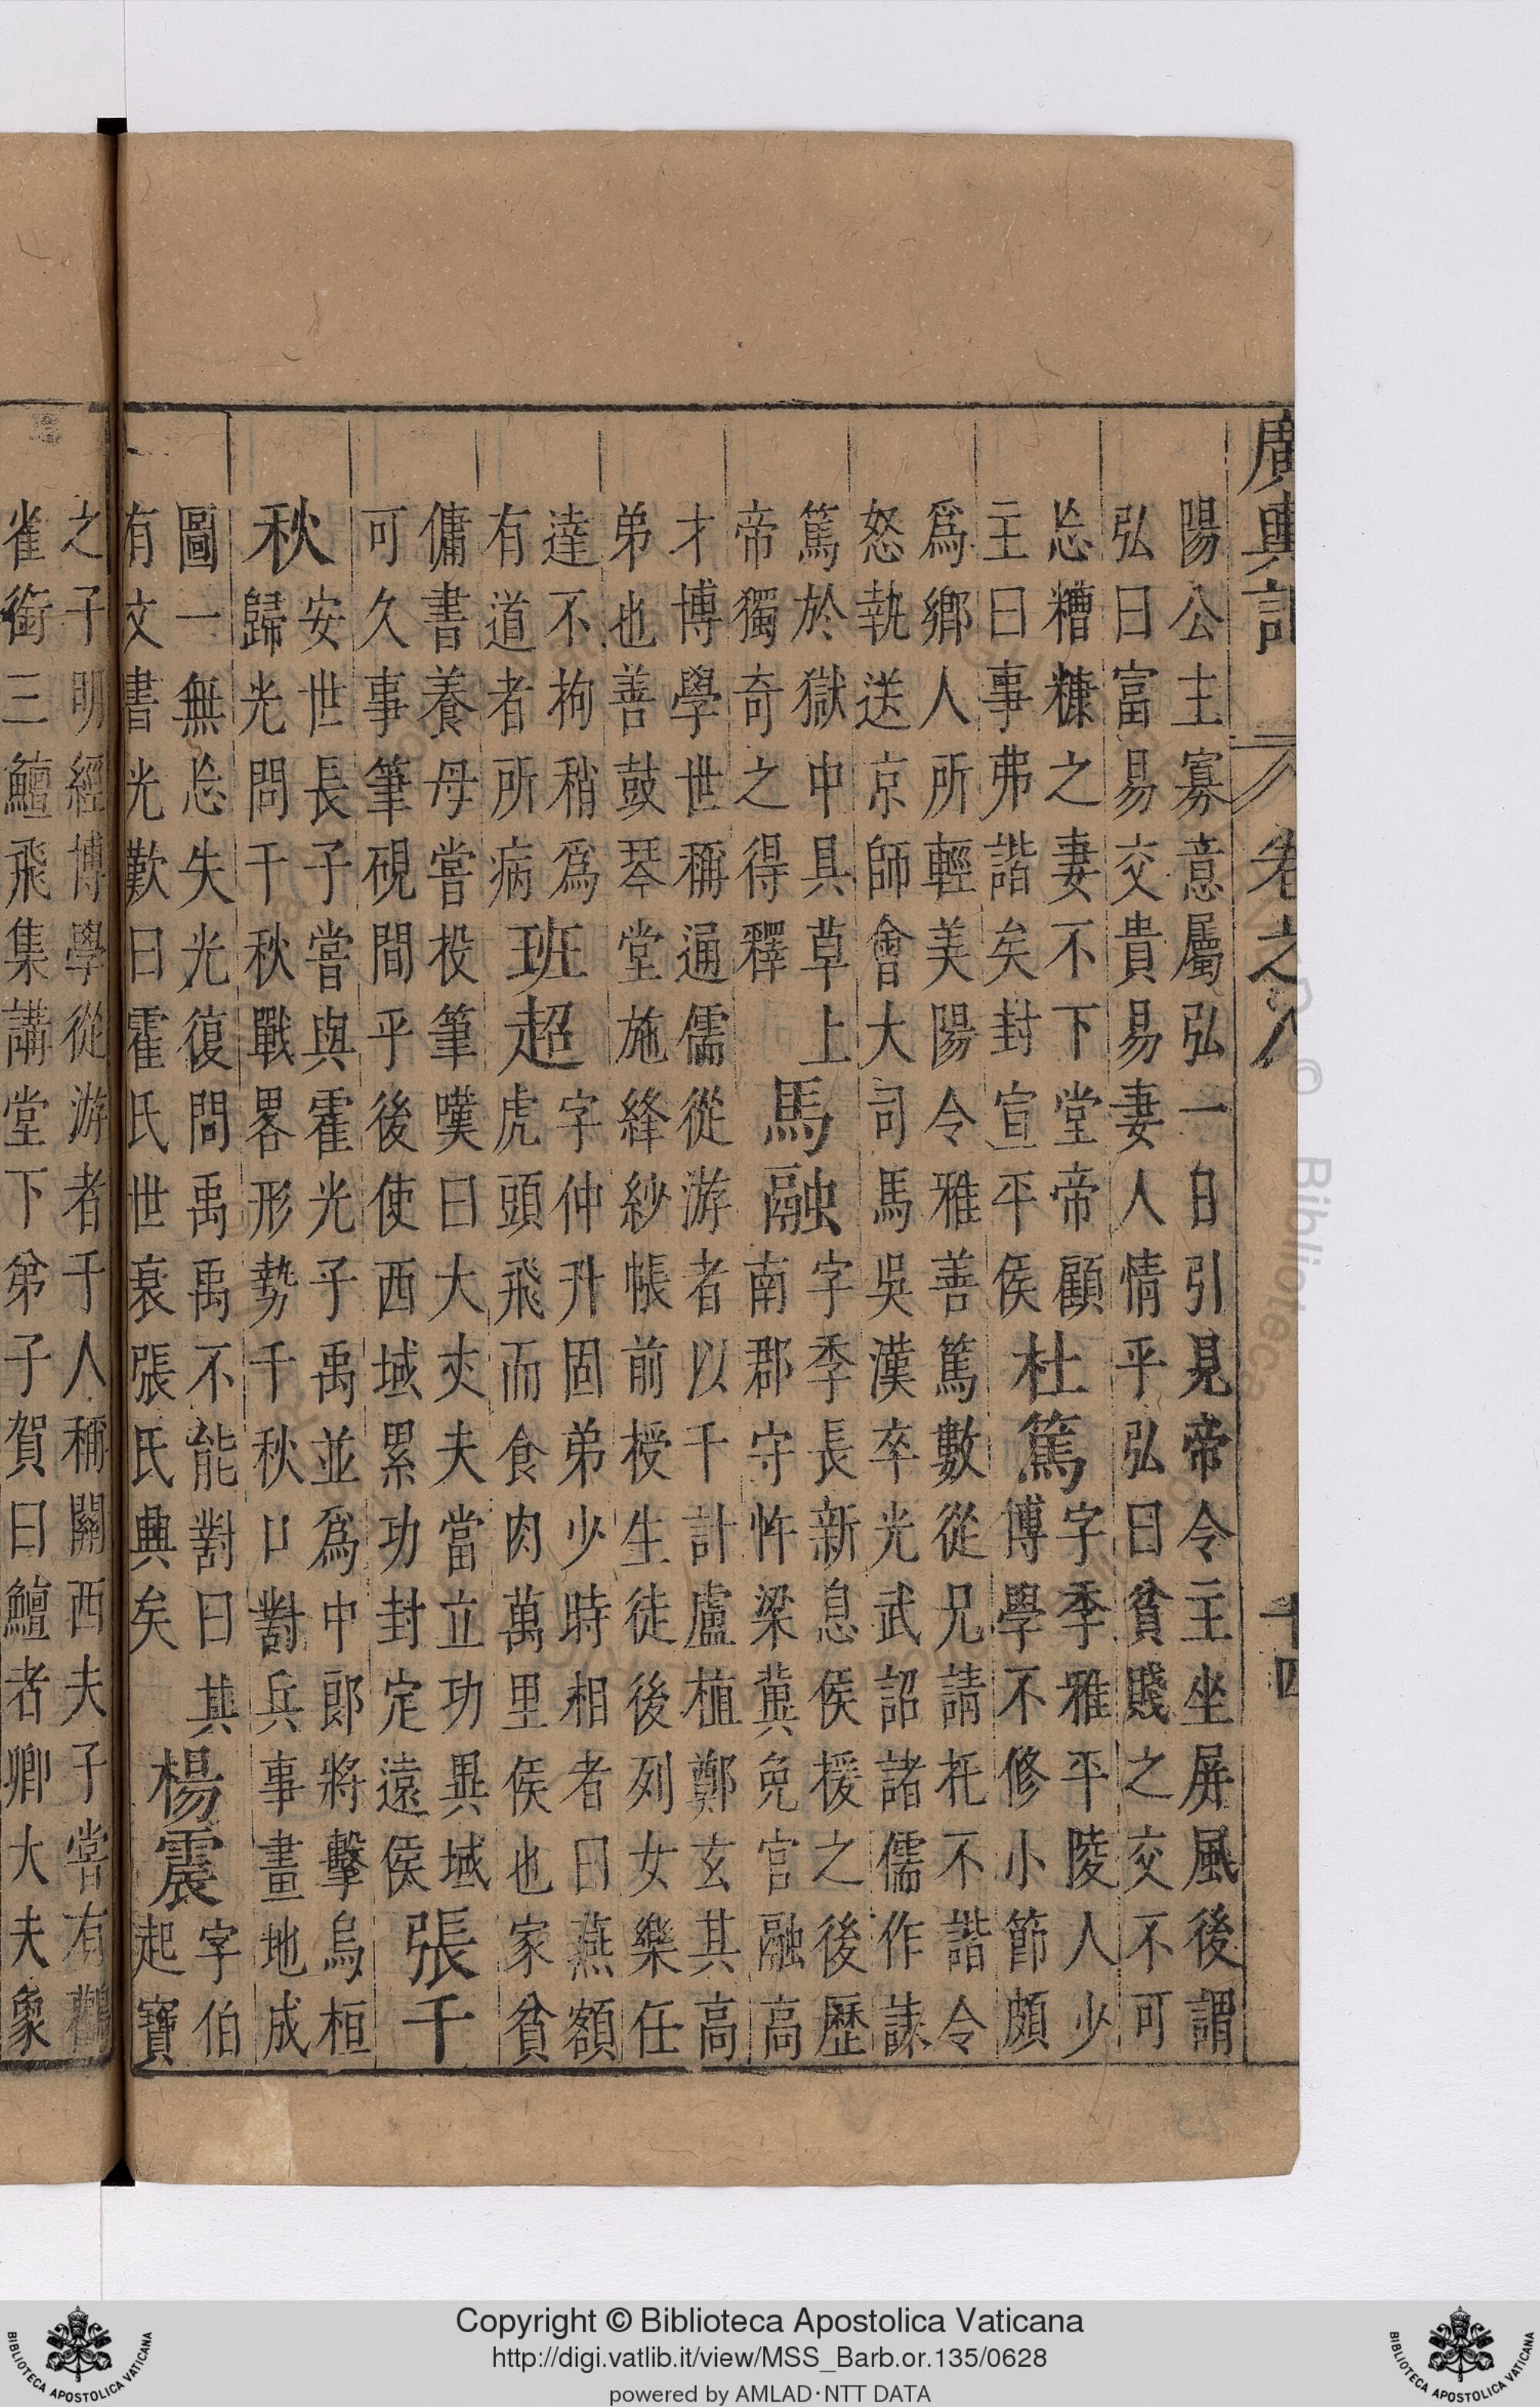 廣輿記
卷之八
十四
陽公主寡意屬弘一日引見帝令主坐屏風後謂
弘曰富易交貴易妻人情乎弘曰貧賤之交不可
忘糟糠之妻不下堂帝顧
主曰事弗諧矣封宣平侯
杜篤
字季雅平陵人少
博學不修小節頗
爲鄉人所輕美陽令雅善篤數從兄請托不諧令
怒執送京師會大司馬吳漢卒光武詔諸儒作誄
篤於獄中具草上
帝獨奇之得釋
馬融
字季長新息侯援之後歷
南郡守忤梁冀免官融高
才博學世稱通儒從游者以千計盧植鄭玄其高
弟也善鼓琴堂施絳紗帳前授生徒後列女樂任
達不拘稍爲
有道者所病
班超
字仲升固弟少時相者曰燕額
虎頭飛而食肉萬里侯也家貧
傭書養母嘗投筆嘆曰大丈夫當立功異域
可久事筆硯間乎後使西域累功封定遠侯
張千
秋
安世長子嘗與霍光子禹並爲中郎將擊烏桓
歸光問千秋戰畧形勢千秋口對兵事畫地成
圖一無忘失光復問禹禹不能對曰其
有文書光歎曰霍氏世衰張氏興矣
楊震
字伯
起寶
之子明經博學從游者千人稱關西夫子嘗有鸛
雀銜三鱣飛集講堂下弟子賀曰鱣者卿大夫象
Copyright © Biblioteca Apostolica Vaticana
http://digi.vatlib.it/view/MSS_Barb.or.135/0628
powered by AMLAD·NTT DATA
BIBLIOTECA APOSTOLICA VATICANA
BIBLIOTECA APOSTOLICA VATICANA